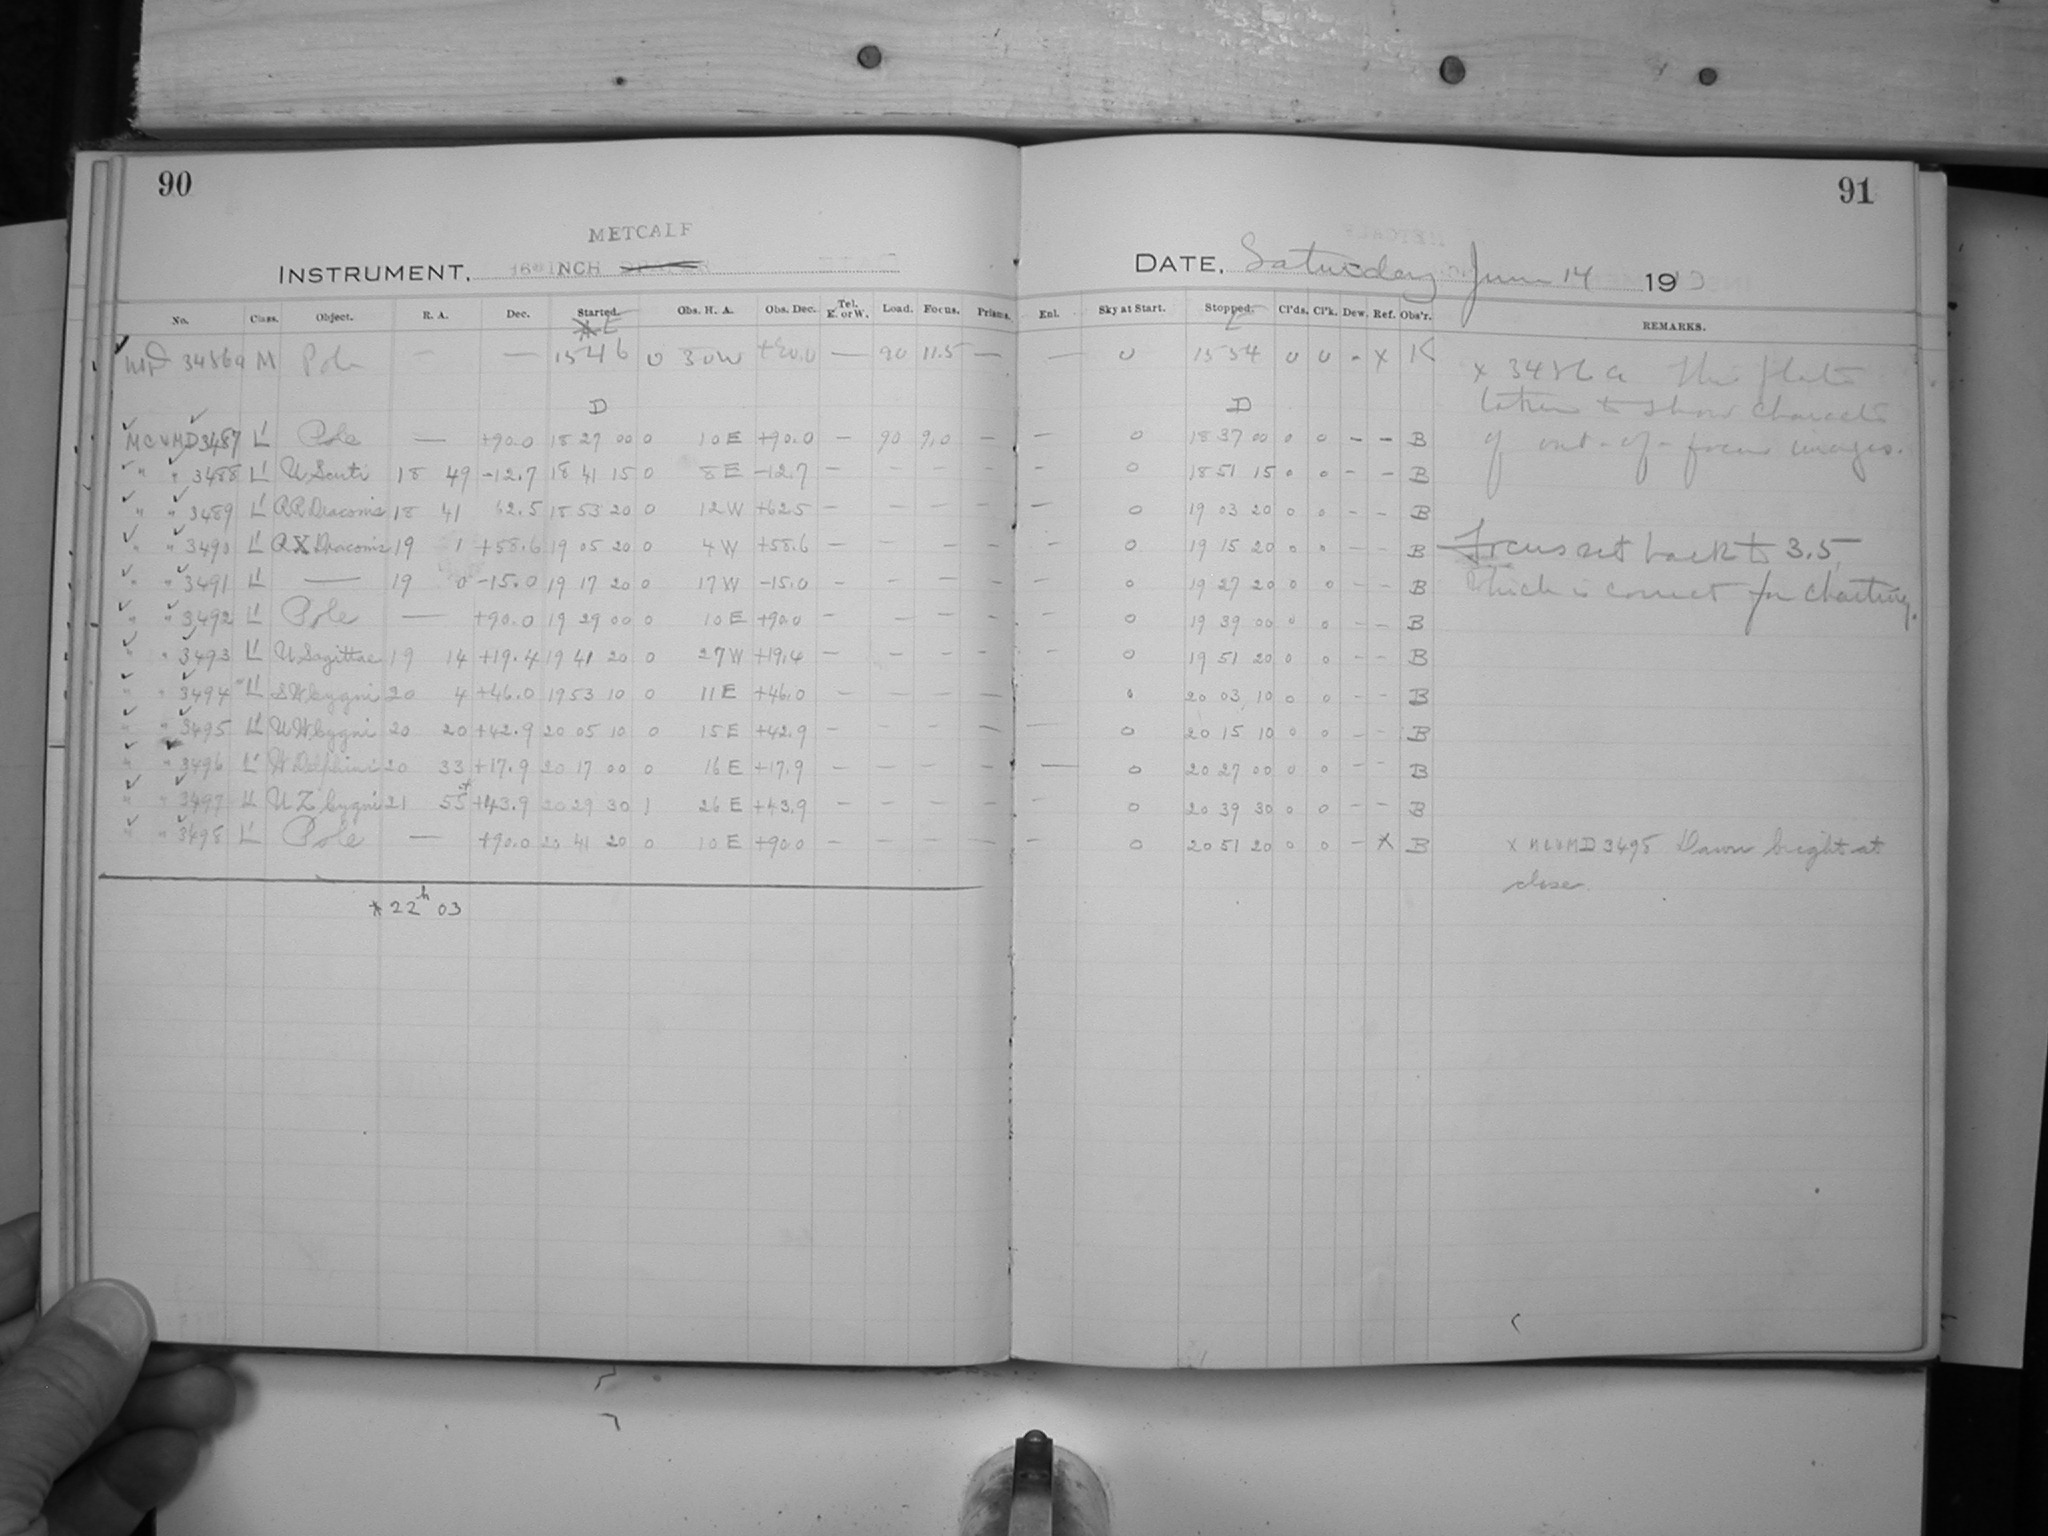 90
METCALF
INSTRUMENT, 16 INCH
No. Class. Object. R. A. Dec. Started. Obs. H. A. Obs. Dec. Tel. E. or W. Load. Focus. Prisms.
E
3486a M Pole — — 15 46 0 30W +90.0 — 90 11.5 —
D
MCVMD3487 L' Pole — +90.0 18 27 00 0 10E +90.0 — 90 9.0 —
" " 3488 L' U Scuti 18 49 -12.7 18 41 15 0 8E -12.7 — — — —
" " 3489 L' RR Draconis 18 41 62.5 18 53 20 0 12W +62.5 — — — —
" " 3490 L' RX Draconis 19 1 +58.6 19 05 20 0 4W +58.6 — — — —
" " 3491 L' — 19 0 -15.0 19 17 20 0 17W -15.0 — — — —
" " 3492 L' Pole — +90.0 19 29 00 0 10E +90.0 — — — —
" " 3493 L' U Sagittae 19 14 +19.4 19 41 20 0 27W +19.4 — — — —
" " 3494 L' SW Cygni 20 4 +46.0 19 53 10 0 11E +46.0 — — — —
" " 3495 L' UW Cygni 20 20 +42.9 20 05 10 0 15E +42.9 — — — —
" " 3496 L' W Delphini 20 33 +17.9 20 17 00 0 16E +17.9 — — — —
" " 3497 L' UZ Cygni 21 55* +43.9 20 29 30 1 26E +43.9 — — — —
" " 3498 L' Pole — +90.0 20 41 20 0 10E +90.0 — — — —
* 22h 03
91
DATE, Saturday June 14 1913
Enl. Sky at Start. Stopped. Cl'ds. Cl'k. Dew. Ref. Obs'r. REMARKS.
E
— 0 15 54 0 0 - x K
x 3486a This plate
taken to show character
of out-of-focus images.
D
— 0 18 37 00 0 0 — — B
— 0 18 51 15 0 0 — — B
— 0 19 03 20 0 0 — — B
— 0 19 15 20 0 0 — — B
Focus set back to 3.5,
which is correct for charting.
— 0 19 27 20 0 0 — — B
— 0 19 39 00 0 0 — — B
— 0 19 51 20 0 0 — — B
0 20 03 10 0 0 — — B
— 0 20 15 10 0 0 — — B
— 0 20 27 00 0 0 — — B
— 0 20 39 30 0 0 — — B
— 0 20 51 20 0 0 — x B
x MCVMD 3498 Dawn bright at
close.